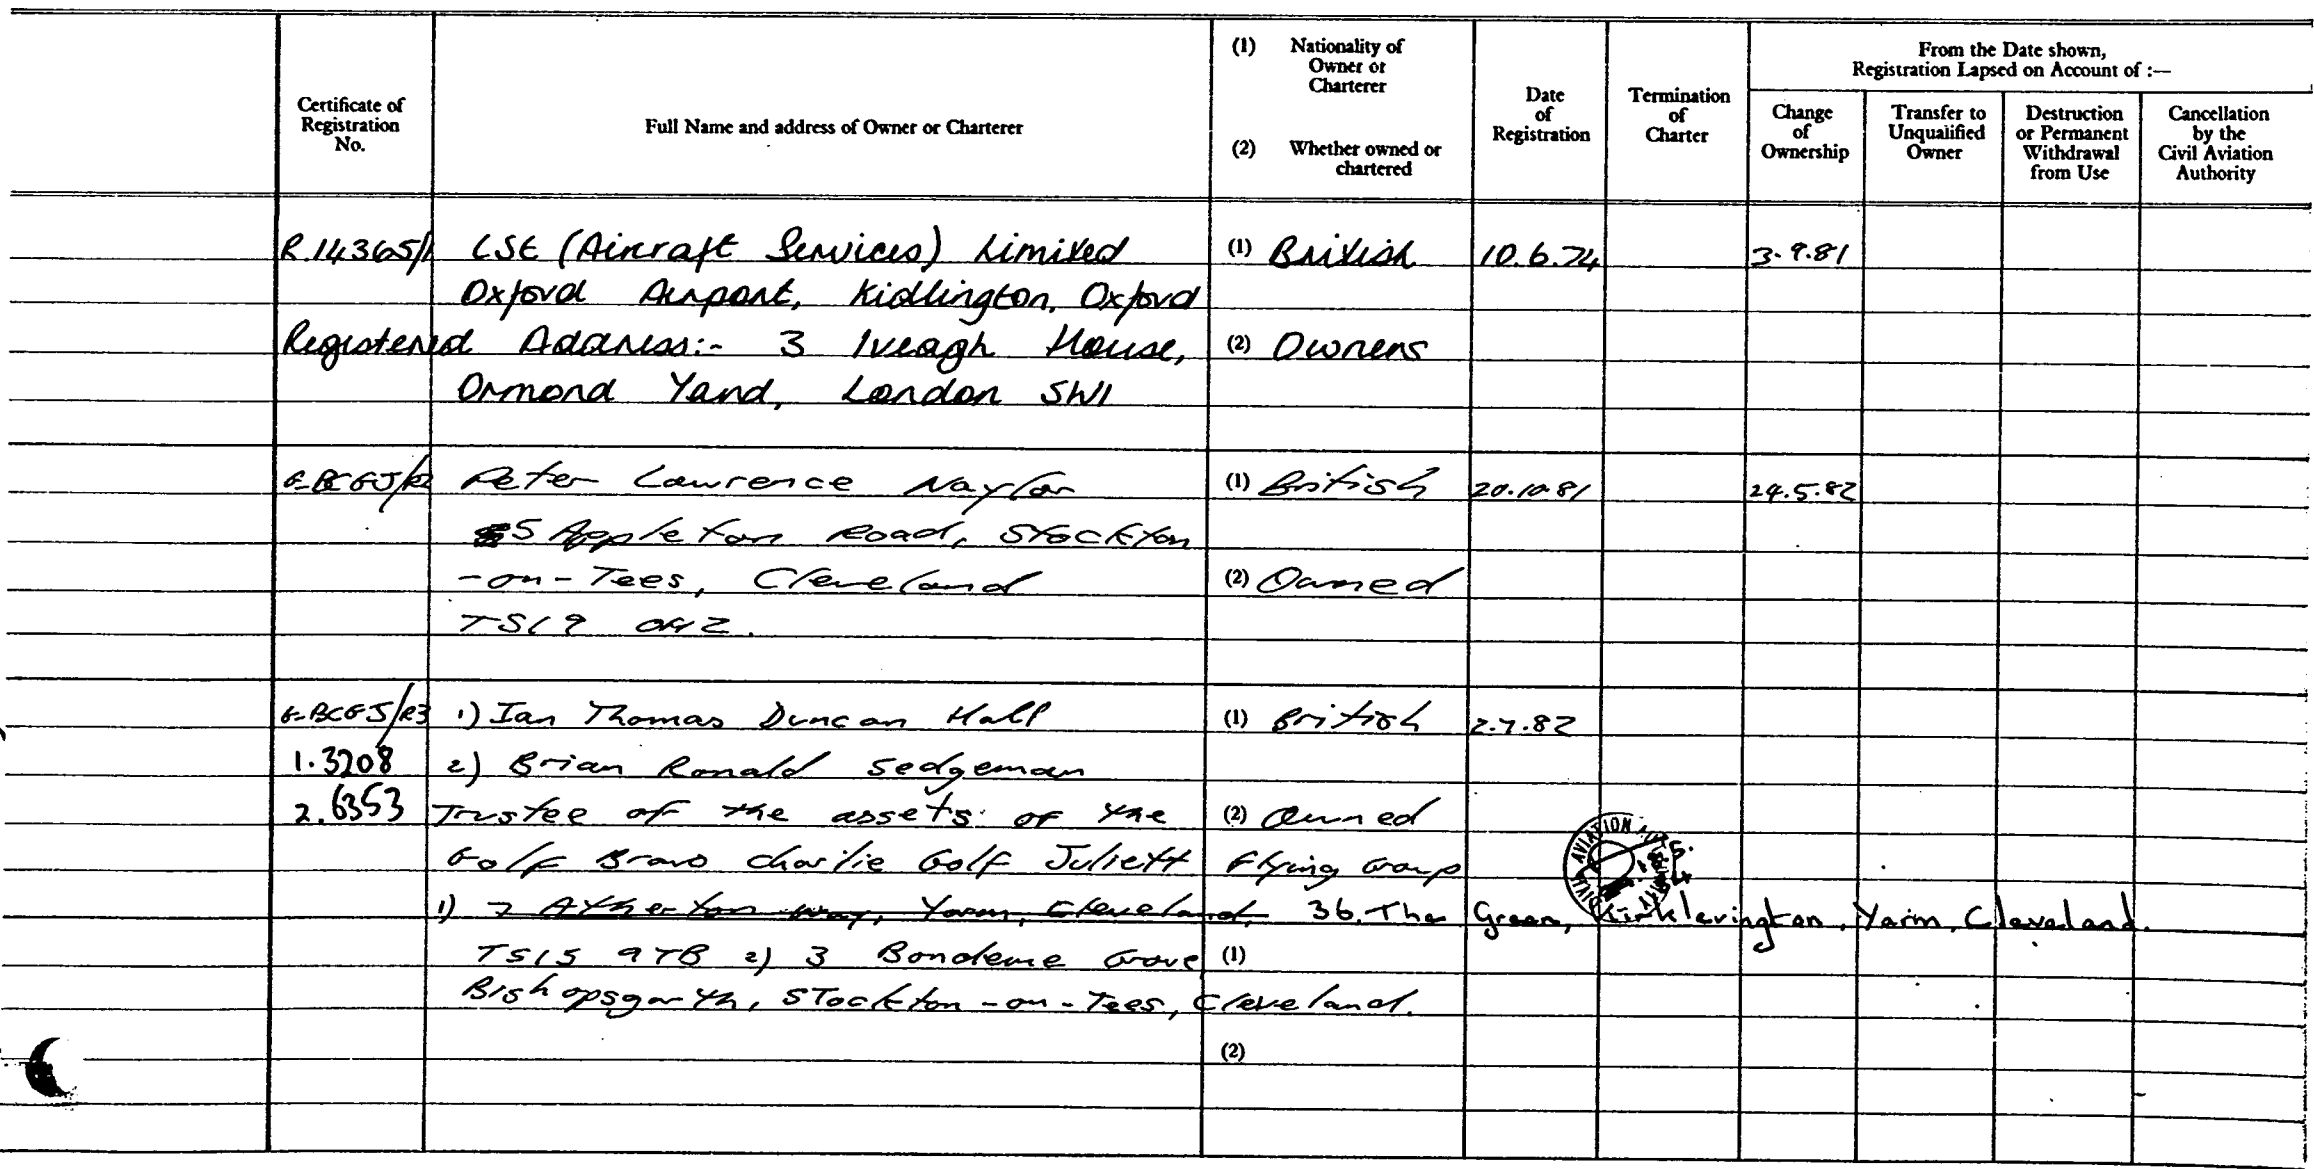 Certificate of Registration No.
Full Name and address of Owner or Charterer
(1) Nationality of Owner or Charterer
(2) Whether owned or chartered
Date of Registration
Termination of Charter
From the Date shown,
Registration Lapsed on Account of :—
Change of Ownership
Transfer to Unqualified Owner
Destruction or Permanent Withdrawal from Use
Cancellation by the Civil Aviation Authority
R.14365/1 CSE (Aircraft Services) Limited (1) British 10.6.74 3.9.81
Oxford Airport, Kidlington, Oxford
Registered Address:- 3 Iveagh House, (2) Owners
Ormond Yard, London SW1
G-BCGJ/R2 Peter Lawrence Naylor (1) British 20.10.81 24.5.82
5 Appleton Road, Stockton
-on-Tees, Cleveland (2) Owned
TS19
G-BCGJ/R3 1) Ian Thomas Duncan Hall (1) British 2.7.82
1.3208 2) Brian Ronald Sedgeman
2.6353 Trustee of the assets of the (2) Owned
Golf Bravo Charlie Golf Juliett Flying Group
1) 7 Atherton Way, Yarm, Cleveland, 36 The Green, Kirklevington, Yarm, Cleveland.
TS15 9TB 2) 3 Grove (1)
Bishopsgarth, Stockton-on-Tees, Cleveland.
(2)
CIVIL AVIATION